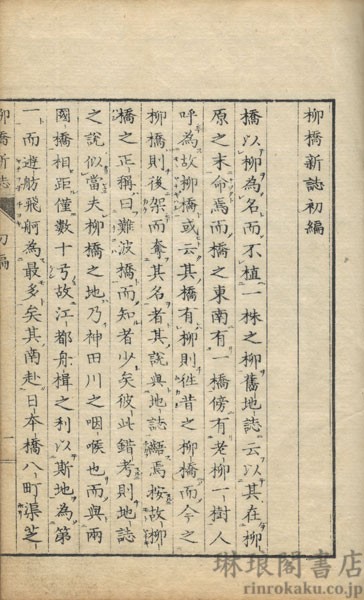 柳橋新誌初編
橋以柳爲名而不植一株之柳舊地誌云以其在柳
原之末命焉而橋之東南有一橋傍有老柳一樹人
呼爲故柳橋或云其橋有柳則往昔之柳橋而今之
柳橋則後架而奪其名者其說與地誌齟焉按故柳
橋之正稱曰難波橋而知者少矣彼此錯考則地誌
之說似當夫柳橋之地乃神田川之咽喉也而與兩
國橋相距僅數十弓故江都舟楫之利以斯地爲第
一而遊舫飛舸爲最多矣其南赴日本橋八町渠芝
柳橋新誌 初編 一
琳琅閣書店
rinrokaku.co.jp